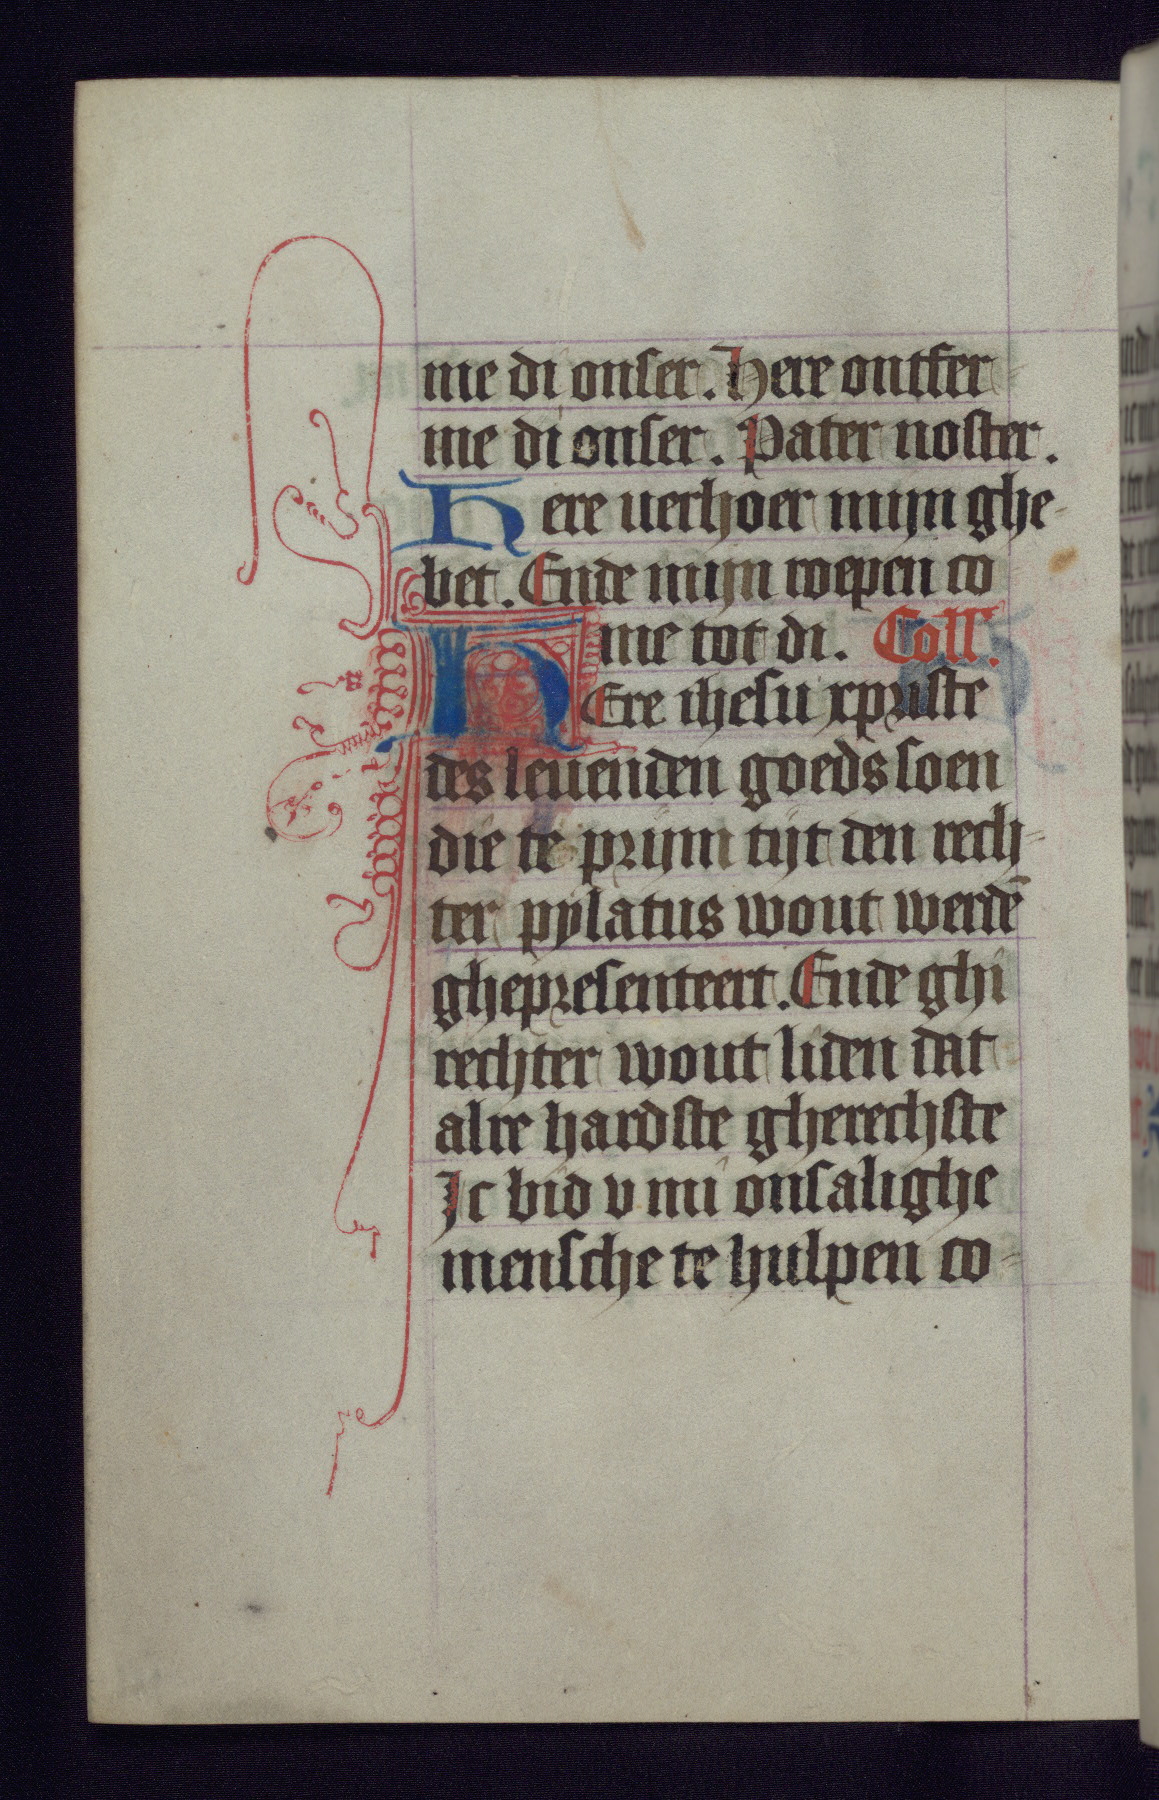 me di onser. Here ontfer
me di onser. Pater noster.
Here verhoer mijn ghe-
bet. Ende mijn roepen co
me tot di. Coll'.
HEre ihesu xpriste
des leuenden goeds soen
die te prijm tijt den rech-
ter pylatus wout werdē
ghepresenteert. Ende ghi
rechter wout liden dat
alre hardste gherechste
Jc bid v mi onsalighe
mensche te hulpen co-